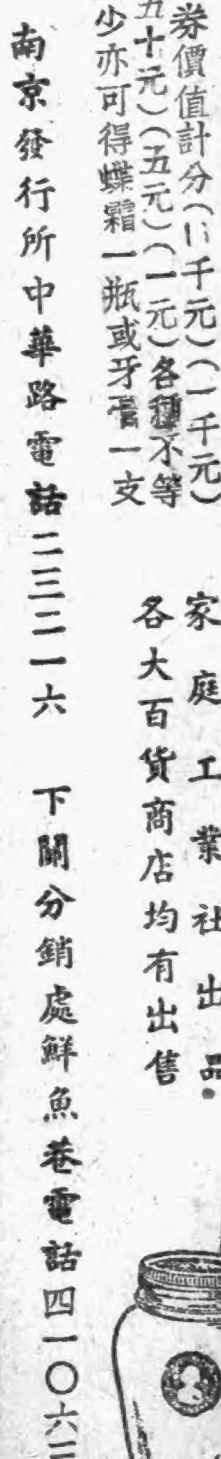 券價值計分(二千元)(一千元)
五十元)(五元)(一元)各種不等
少亦可得蝶霜一瓶或牙膏一支
家庭工業社出品.
各大百貨商店均有出售
南京發行所中華路電話二三二一六 下關分銷處鮮魚巷電話四一〇六